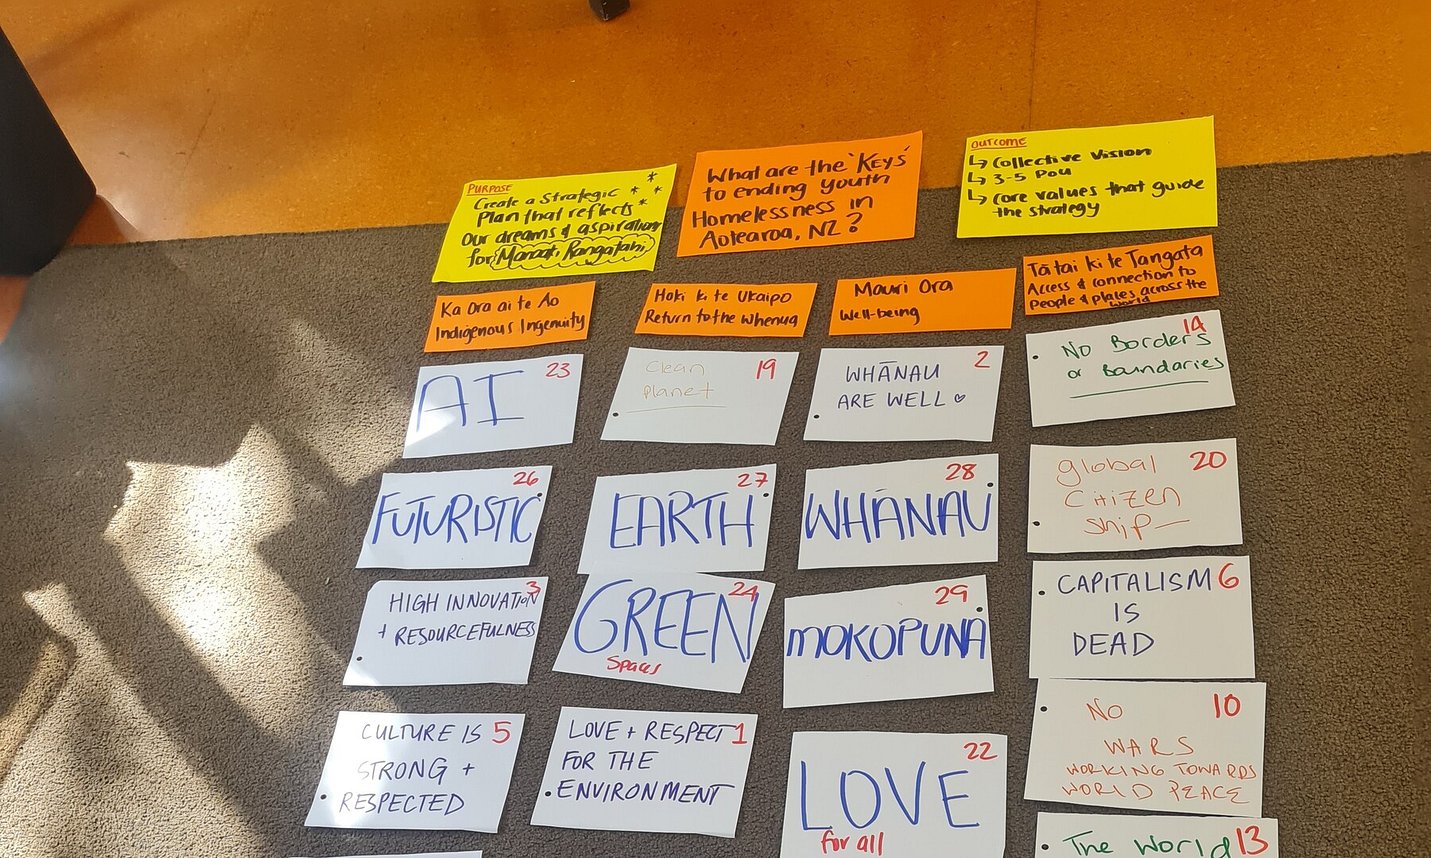 PURPOSE
Create a Strategic
Plan that reflects
Our dreams & aspirations
for Manaaki Rangatahi
What are the 'Keys'
to ending youth
Homelessness in
Aotearoa, NZ?
OUTCOME
↳ Collective Vision
↳ 3-5 Pou
↳ Core values that guide
the strategy
Ka Ora ai te Ao
Indigenous Ingenuity
Hoki ki te Ukaipo
Return to the Whenua
Mauri Ora
Well-being
Tātai ki te Tangata
Access & Connection to
People & places across the
world
AI 23
FUTURISTIC 26
HIGH INNOVATION 3
+ RESOURCEFULNESS
CULTURE IS 5
STRONG +
RESPECTED
Clean 19
Planet
EARTH 27
GREEN 24
Spaces
LOVE + RESPECT 1
FOR THE
ENVIRONMENT
WHĀNAU 2
ARE WELL ♡
WHĀNAU 28
MOKOPUNA 29
LOVE 22
for all
No Borders 14
or Boundaries
global 20
Citizen
ship
CAPITALISM 6
IS
DEAD
No 10
WARS
WORKING TOWARDS
WORLD PEACE
The World 13